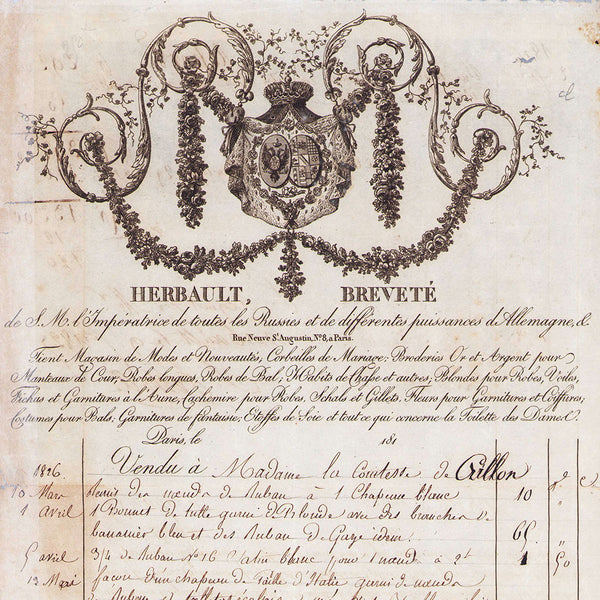 HERBAULT, BREVETÉ
de S. M. l'Impératrice de toutes les Russies et de différentes puissances d'Allemagne, &.
Rue Neuve St. Augustin, No. 8, a Paris.
Tient Magasin de Modes et Nouveautés, Corbeilles de Mariage; Broderies Or et Argent pour
Manteaux de Cour, Robes longues, Robes de Bal; Habits de Chasse et autres; Blondes pour Robes, Voiles,
Fichus et Garnitures à l'Aune, Cachemire pour Robes, Schals et Gillets. Fleurs pour Garnitures et Coëffures;
Costumes pour Bals. Garnitures de fantaisie; Etoffes de Soie et tout ce qui concerne la Toilette des Dames.
Paris, le 181
1816 Vendu à Madame la Comtesse de Crillon
10 Mars des nœuds de Ruban à 1 Chapeau blanc 10
1 avril 1 Bonnet de tulle garni de Blonde avec des branches de
bananier bleu et des Ruban de Gaze idem 65
5 avril 3/4 de Ruban No 16 Satin blanc pour 1 nœud à 2 1 50
13 Mai façon d'un chapeau de Paille d'Italie garni de nœuds
de Ruban